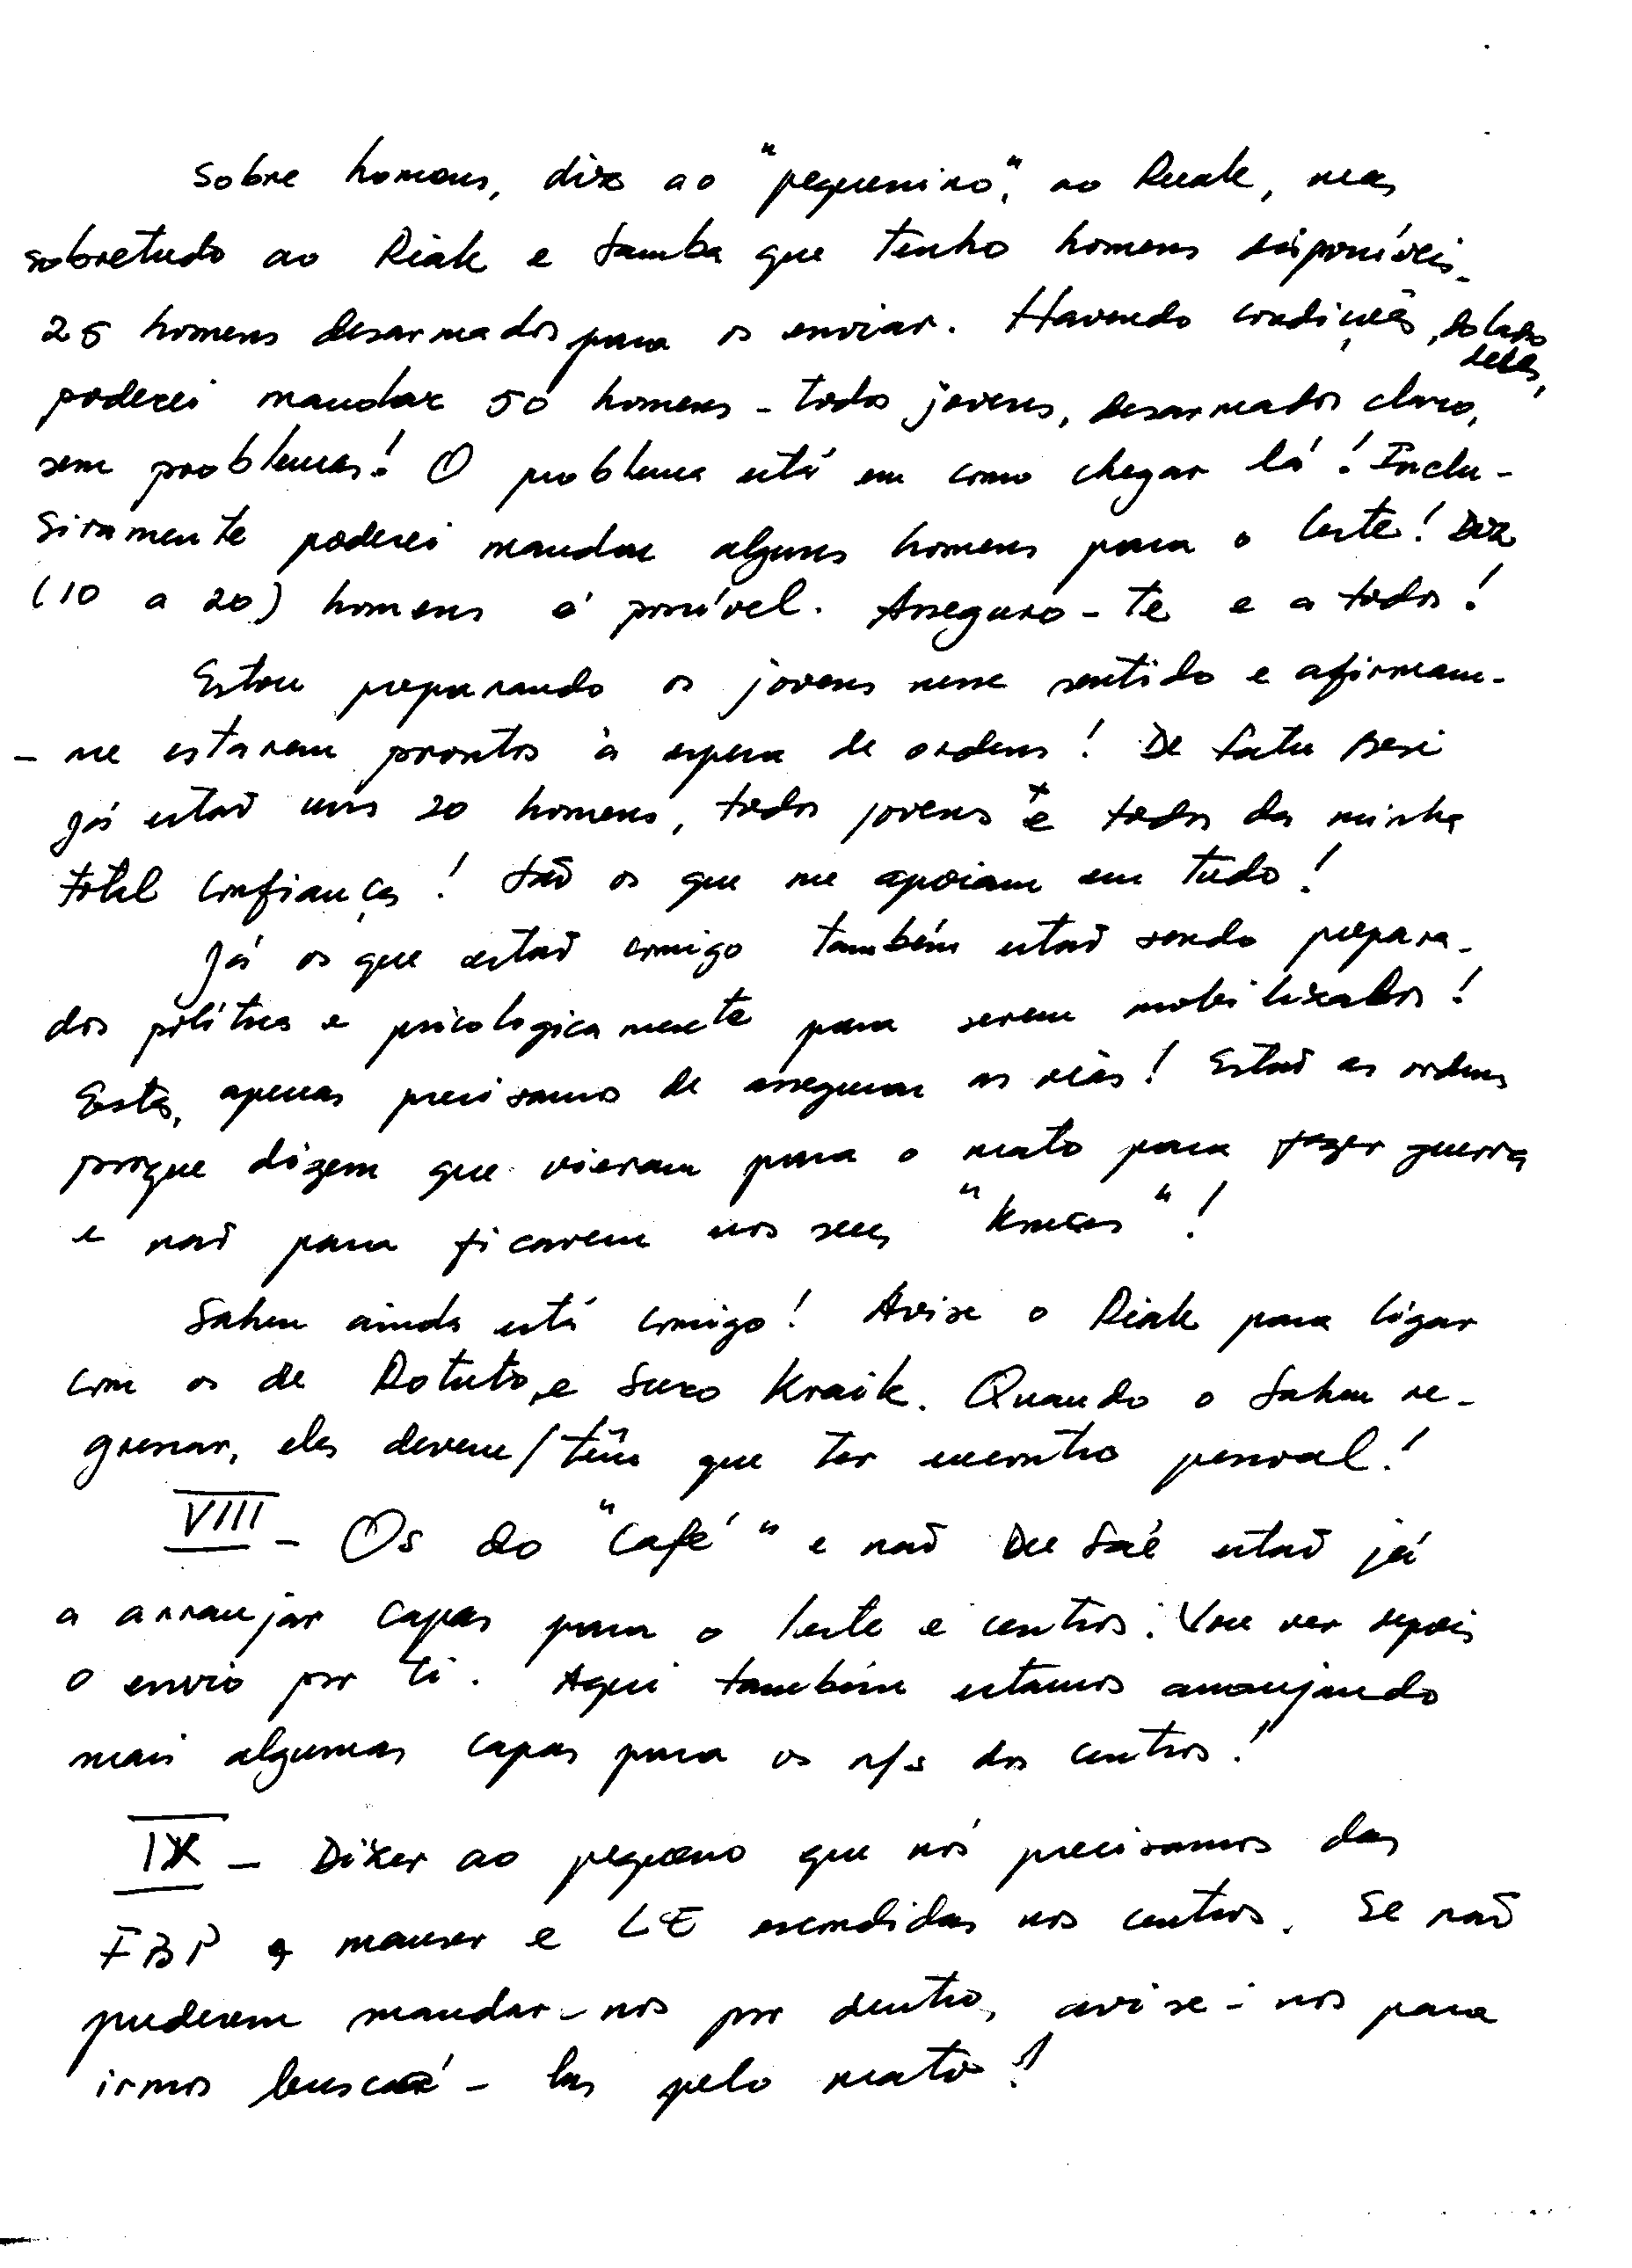 Sobre homens, diz ao "pequenino", ao Ruak, mas
sobretudo ao Riak e Samba que tenho homens disponíveis.
25 homens desarmados para os enviar. Havendo condições, do lado deles,
poderei mandar 50 homens - todos jovens, desarmados claro,
sem problemas! O problema está em como chegar lá! Inclu-
sivamente poderei mandar alguns homens para o leste! Diz
(10 a 20) homens é possível. Asseguro-te e a todos!
Estou preparando os jovens nesse sentido e afirmam-
-me estarem prontos à espera de ordens! De Fatu Besi
já estão uns 20 homens, todos jovens e todos da minha
total confiança! São os que me apoiam em tudo!
Já os que estão comigo também estão sendo prepara-
dos política e psicologicamente para serem mobilizados!
Estes, apenas precisamos de assegurar as vias! Estão as ordens
porque dizem que vieram para o mato para fazer guerra
e não para ficarem nos seus "      "!
Sahen ainda está comigo! Avise o Riak para ligar
com os de Rotuto, e Suro Kraik. Quando o Sahen re-
gressar, eles devem/têm que ter encontro pessoal!
VIII - Os do "Café" e não De Saé estão já
a arranjar capas para o leste e centros. Vou ver depois
o envio por ti. Aqui também estamos arranjando
mais algumas capas para os n/s dos centros!
IX - Dizer ao pequeno que nós precisamos das
FBP e mauser e LE escondidas nos centros. Se não
puderem mandar-nos por dentro, avise-nos para
irmos buscá-las pelo mato!